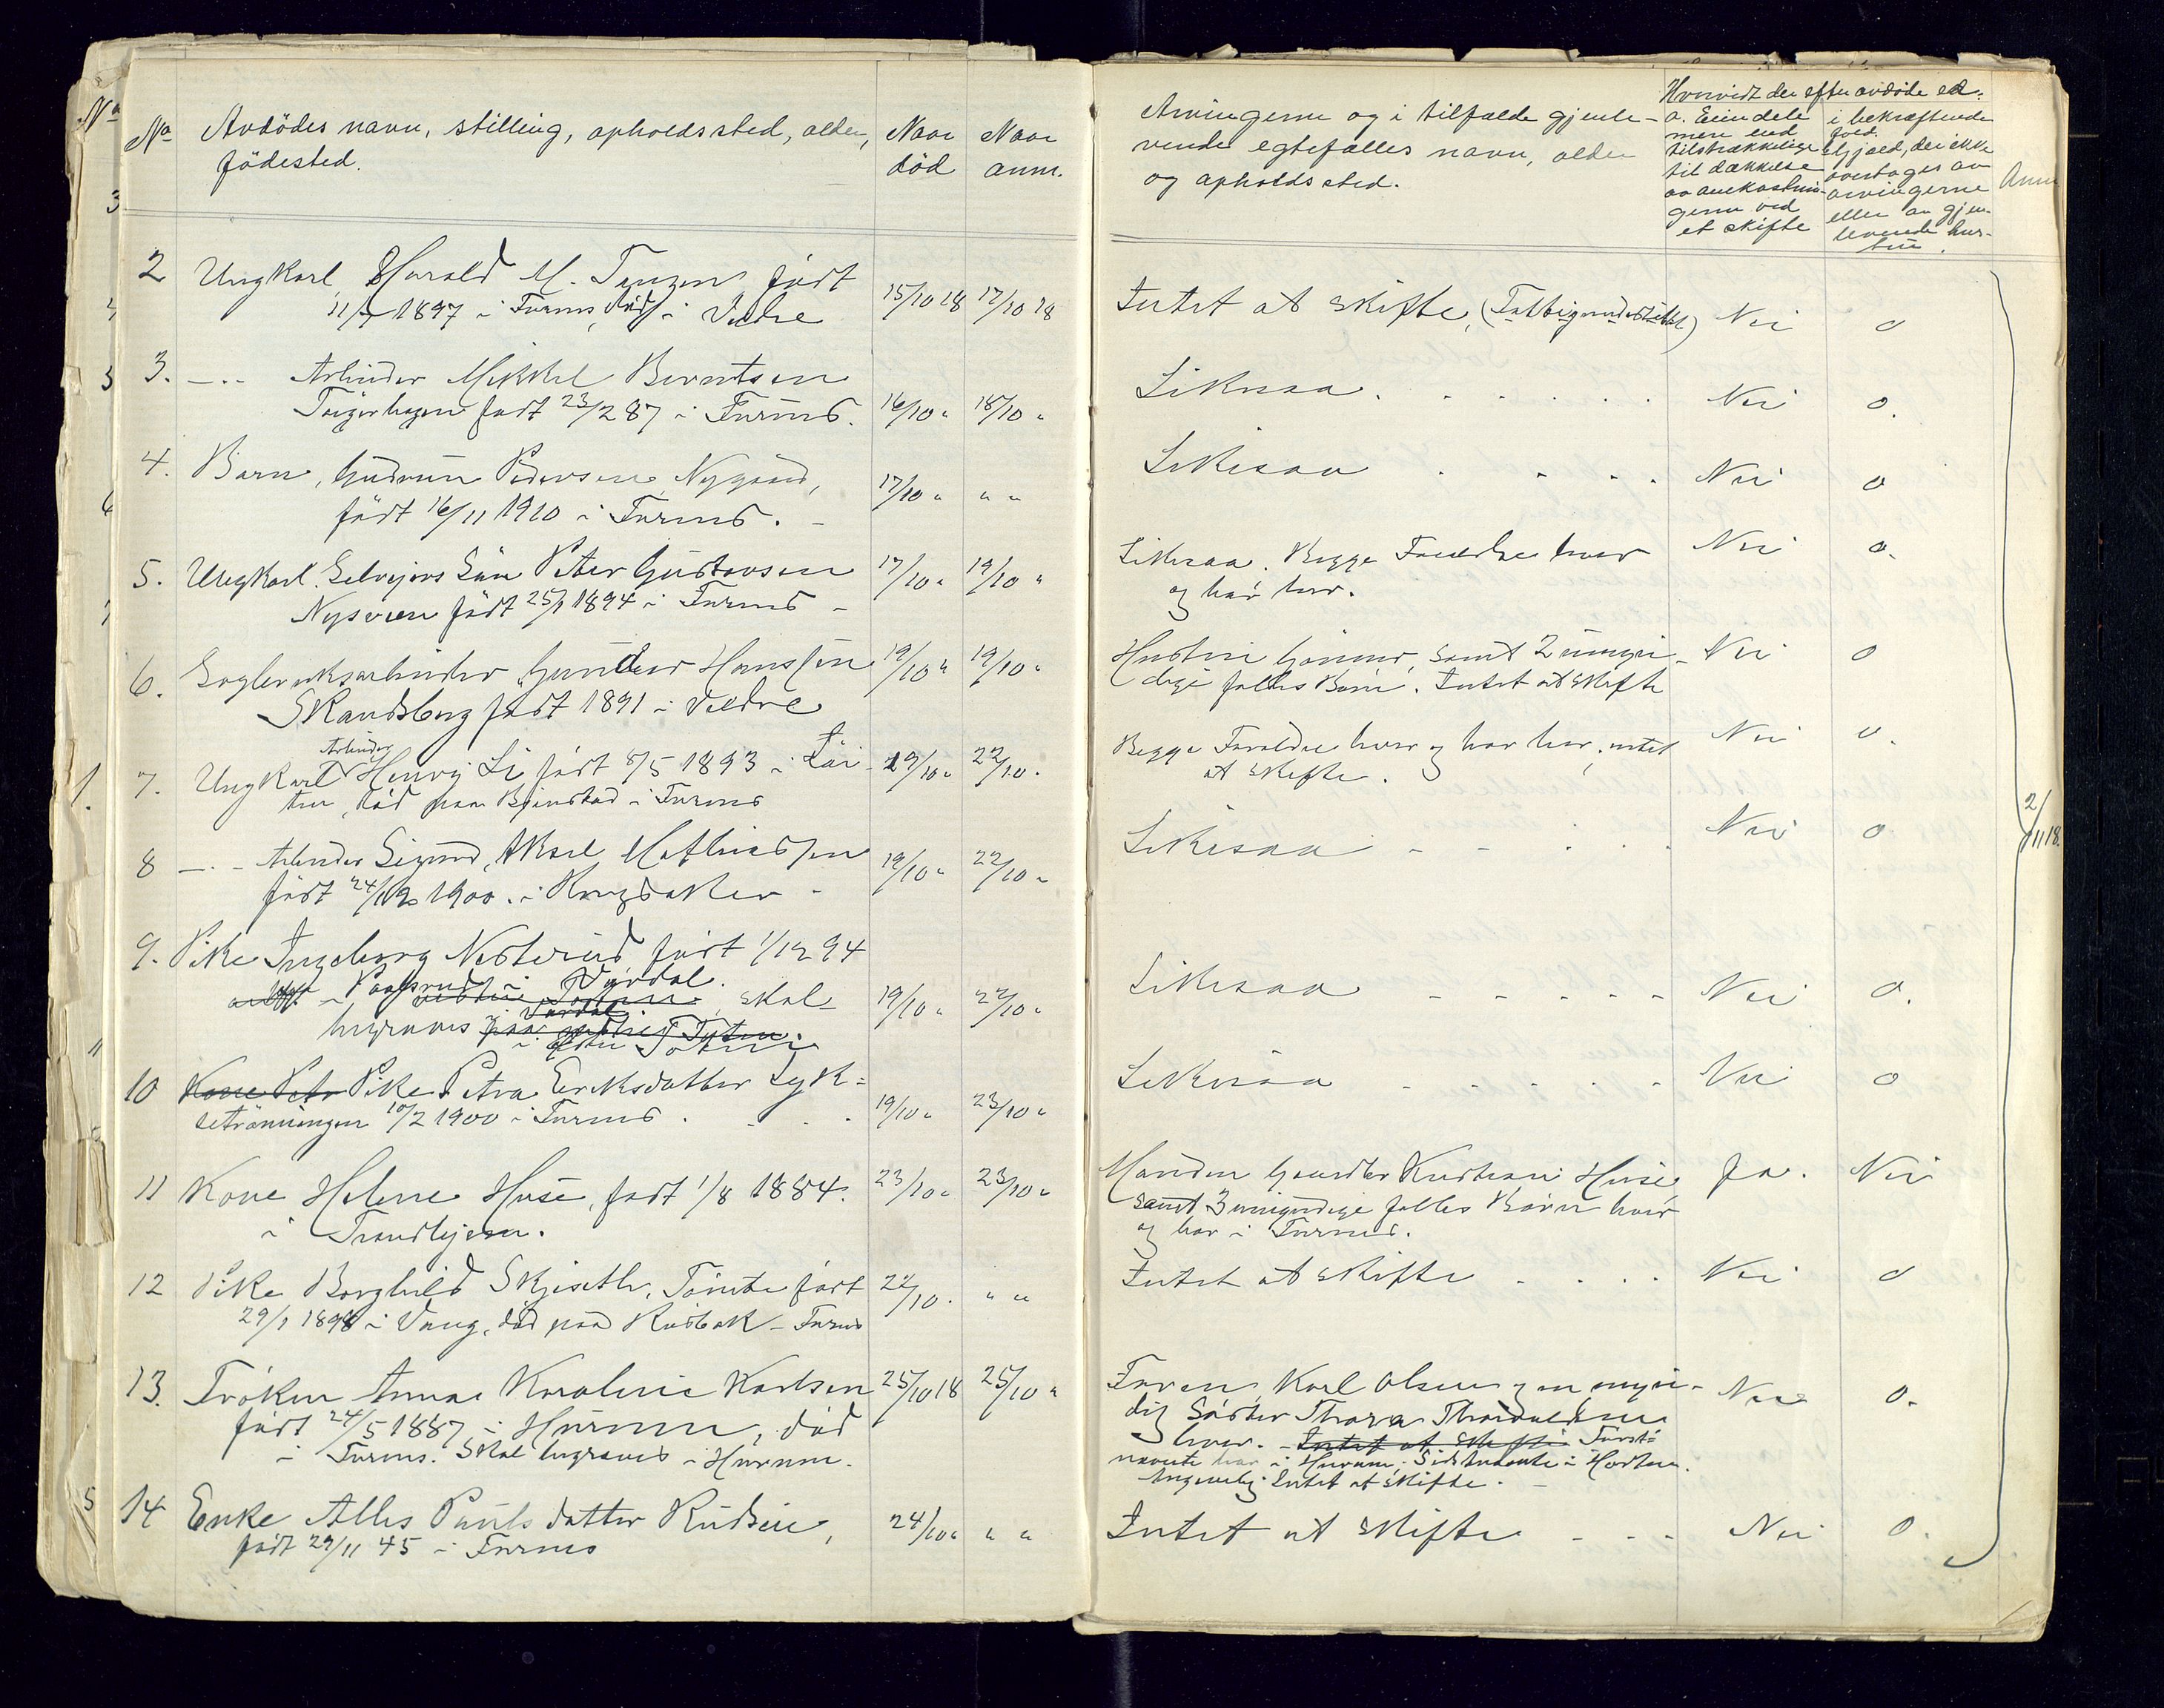 No Avdödes navn, stilling, opholdssted, alder,
födested.
Naar död
Naar anm.
Arvingerne og i tilfælde gjenle-
vende egtefælles navn, alder
og opholdssted.
Hvorvidt der efter avdöde er:
a. Eiendele
mere end
tilstrækkelige
til dækkelse
av omkostnin-
gerne ved
et skifte
i bekræftende
fald.
Gjæld, der ikke
overtages av
arvingerne
eller av gjen-
levende hus-
tru.
Anm
2 Ungkarl, Harald M. Tangen födt
1897 i Furnes, död i Veldre
15/10 18 17/10 18
Intet at skifte, (Fattigunderstöttet) Nei 0
3. —.- Arbeider Mikkel Berntsen
födt 23/2 87 i Furnes. 16/10 " 18/10 "
Likesaa. Nei 0.
4. Barn, Gudrun Pedersen Nygaard,
födt 16/11 1910 i Furnes. 17/10 " " "
Likesaa Nei 0
5. Ungkarl. Selveiers Sön Peter Gustavsen
Nysveen födt 25/1 1894 i Furnes 17/10 " 19/10 "
Likesaa. Begge Forældre lever
og bor her. Nei 0.
6. Teglverksarbeider Gunder Hanssen
Skandsberg födt 1891 i Veldre 19/10 " 19/10 "
Hustru Gunnor, samt 2 umyn-
dige fælles Börn. Intet at skifte Nei 0
7. Ungkarl Arbeider Henry Li födt 8/5 1893 i Löi-
ten, död paa Bjönstad i Furnes 19/10 " 22/10.
Begge Forældre lever og bor her, intet
at skifte. Nei 0.
8 —.- Arbeider Sigurd Aksel Mathiassen
födt 1900. i Ringsaker 19/10 " 22/10 "
Likesaa Nei 0
9. Pike Ingeborg Nesterud födt 1/12 94
i Vardal. skal
begraves
i Östre Toten
19/10 " 22/10 "
Likesaa Nei 0.
10 Kone Petr Pike Petra Eriksdatter Lyk-
setrönningen 10/2 1900 i Furnes. 19/10 " 23/10 "
Likesaa Nei 0
11 Kone Helene Huse, födt 1/8 1884.
i Trondhjem. 23/10 " 23/10 "
Manden Gaardbr Kristian Huse
samt 3 umyndige fælles Börn lever
og bor i Furnes. Ja. Nei
12 Pike Borghild Skjeseth, Tömte födt
29/1 1898 i Vang, död paa Rudbak - Furnes 22/10. " "
Intet at skifte Nei 0
13. Fröken Anna Karoline Karlsen
födt 24/5 1887 i Hurum, död
i Furnes. Skal begraves i Hurum. 25/10 18 25/10 "
Faren, Karl Olsen og en myn-
dig Söster Thora Thorvaldsen
lever. - Intet at skifte Först-
nævnte bor i Hurum. Sidstnævnte i Horten.
Angivelig Intet at skifte. Nei 0.
14 Enke Alles Paulsdatter Rudsen,
födt 29/11 45 i Furnes 24/10 " " "
Intet at skifte Nei 0.
2/11 18.